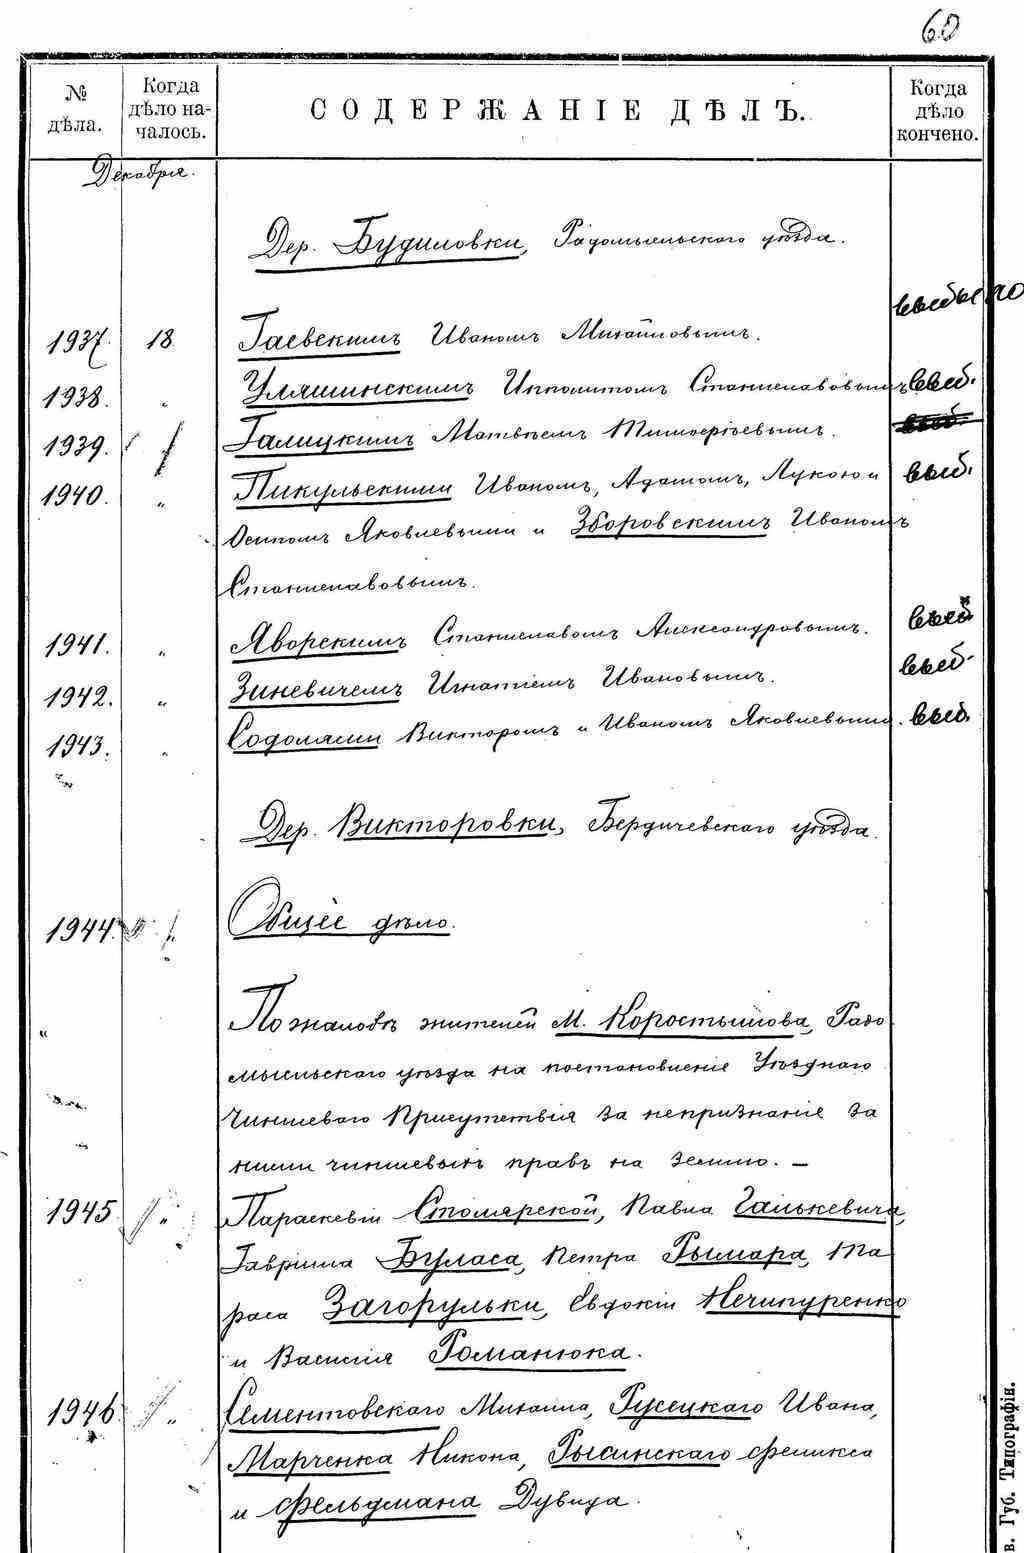 60
№ дѣла.
Когда дѣло началось.
СОДЕРЖАНІЕ ДѢЛЪ.
Когда дѣло кончено.
Декабря.
Дер. Будиловки, Радомысльскаго уѣзда.
выбыло
1937. 18 Гаевскимъ Иваномъ Михайловымъ.
1938. „ Уляшинскимъ Ипполитомъ Станиславовымъ выб.
1939. Галицкимъ Матвѣемъ Тимофѣевымъ. выб.
1940. „ Пикульскими Иваномъ, Адамомъ, Лукою и выб.
Осипомъ Яковлевыми и Зборовскимъ Иваномъ
Станиславовымъ.
1941. „ Яворскимъ Станиславомъ Александровымъ. выб
1942. „ Зиневичемъ Игнатіемъ Ивановымъ. выб.
1943. „ Содолями Викторомъ и Иваномъ Яковлевыми. выб.
Дер. Викторовки, Бердичевскаго уѣзда.
1944. Общее дѣло.
„ По жалобѣ жителей М. Коростышова, Радо
мысльскаго уѣзда на постановленіе Уѣзднаго
Чиншеваго Присутствія за непризнаніе за
ними чиншевыхъ правъ на землю. —
1945 „ Параскевіи Столярской, Павла Галькевича,
Гавріила Буласа, Петра Рымара, Та
раса Загорульки, Евдокіи Нечипуренко
и Василія Романюка.
1946 „ Сементовскаго Михаила, Русецкаго Ивана,
Марченка Никона, Рысинскаго Феликса
и Фельдмана Дувида.
в. Губ. Типографіи.